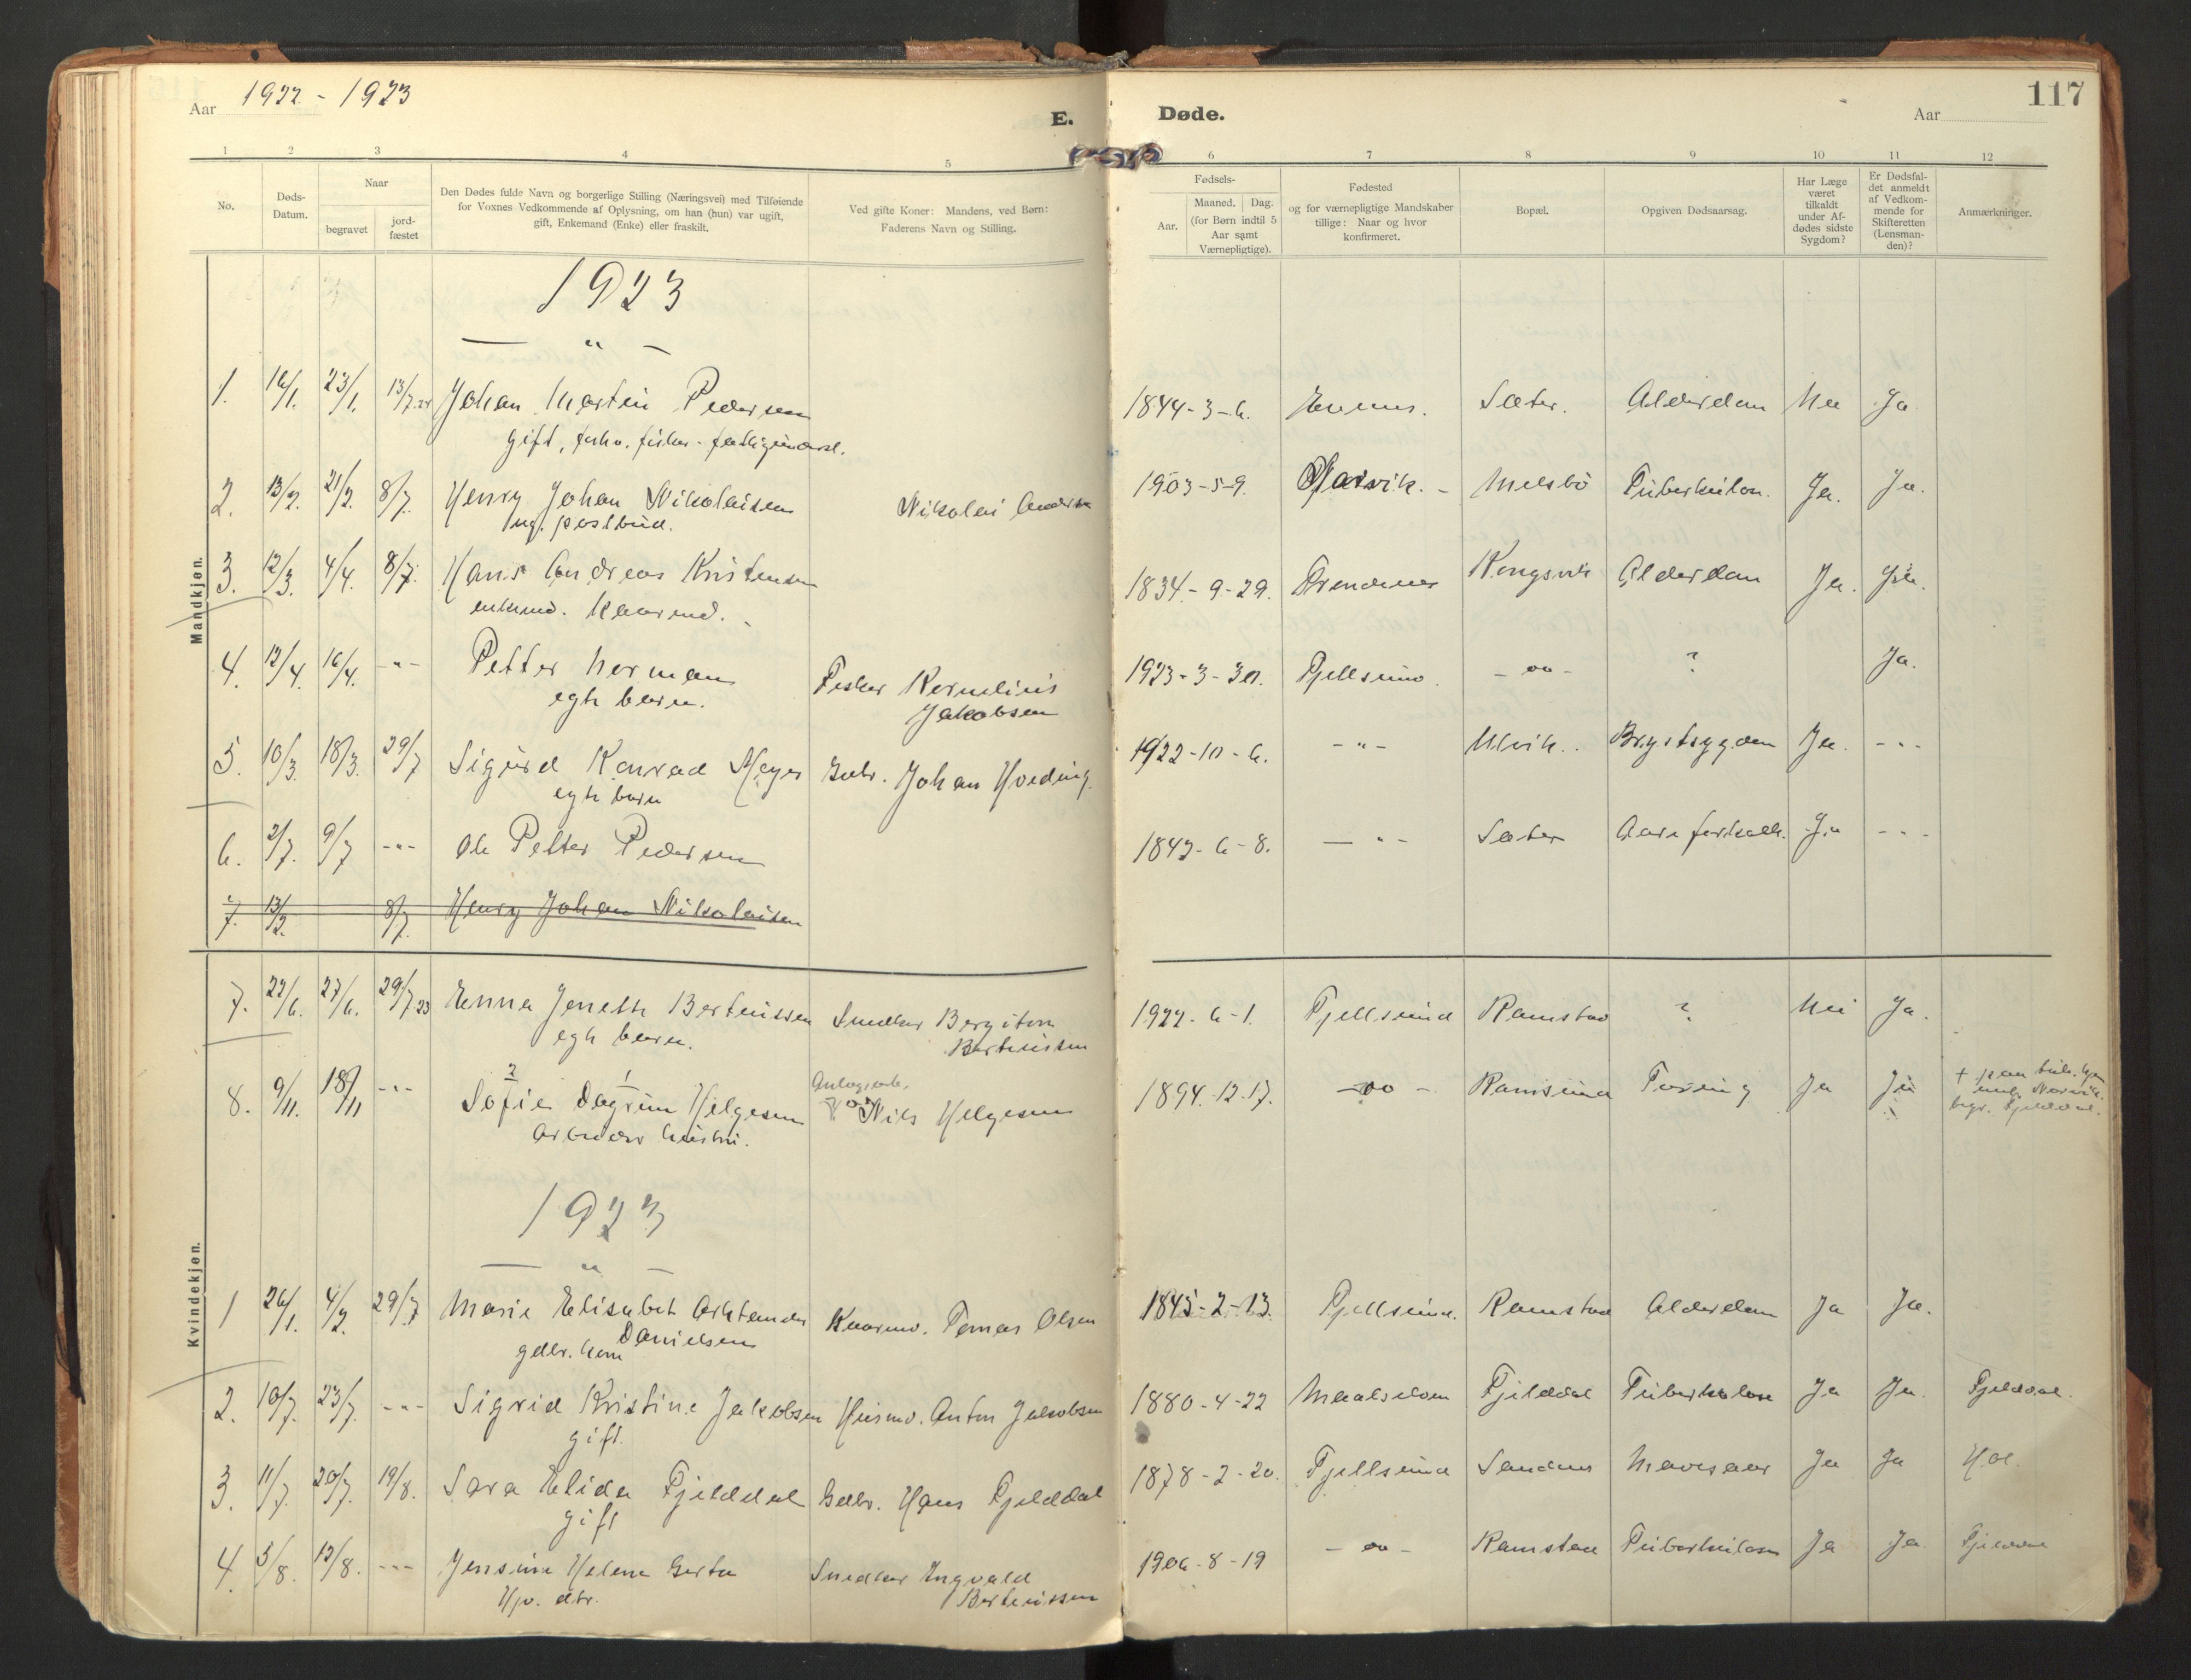 Aar 1922 - 1923
E.
Døde.
Aar
117
1 2 3 4 5 6 7 8 9 10 11 12
No.
Døds-
Datum.
Naar
begravet
jord-
fæstet
Den Dødes fulde Navn og borgerlige Stilling (Næringsvei) med Tilføiende
for Voxnes Vedkommende af Oplysning, om han (hun) var ugift,
gift, Enkemand (Enke) eller fraskilt.
Ved gifte Koner: Mandens, ved Børn:
Faderens Navn og Stilling.
Fødsels-
Aar.
Maaned. Dag.
(for Børn indtil 5
Aar samt
Værnepligtige).
Fødested
og for værnepligtige Mandskaber
tillige: Naar og hvor
konfirmeret.
Bopæl.
Opgiven Dødsaarsag.
Har Læge
været
tilkaldt
under Af-
dødes sidste
Sygdom?
Er Dødsfal-
det anmeldt
af Vedkom-
mende for
Skifteretten
(Lensman-
den)?
Anmærkninger.
Mandkjøn.
1923
— " —
1. 16/1. 23/1. 13/7.24 Johan Martin Pedersen 1844-3-6. Evenes. Sæter. Alderdom Nei Ja
gift, forhv. fisker - fattigunderst.
2. 13/2. 21/2. 8/7. Henry Johan Nikolaisen Nikolai 1903-5-9. Narvik. - Melsbö Tuberkulon. Ja. Ja.
ug. postbud.
3. 12/3. 4/4. 8/7. Hans Andreas Kristensen 1834-9-29. Trondenes Kongsvik Alderdom Ja. Ja.
enkemd. Kaarmd.
4. 12/4. 16/4. -"- Petter Herman Fisker Kornelius 1923-3-30. Fjellsund. -oo- ? Ja.
egte barn. Jakobsen
5. 10/3. 18/3. 29/7 Sigurd Konrad Meyer Gdbr. Johan Hveding. 1922-10-6. -"- Ulvik. Brystsygdom Ja. -"-
egte barn
6. 2/7. 9/7 -"- Ole Petter Pedersen 1842-6-8. -"- Sæter Aareforkalk. Ja -"-
7. 13/2. 8/7. Henry Johan Nikolaisen
7. 22/6. 27/6. 29/7 23 Enna Jenette Berteussen Snedker Bergiton 1922-6-1. Fjellsund Ramstad ? Nei Ja.
egte barn. Berteussen
8. 9/11. 18/11 -"- Sofie Dagrun Helgesen Nils Helgesen 1894-12-17. -oo- Ramsund Tæring Ja Ja
2 1
Arbeider hustru.
Kvindekjøn.
1923
— " —
1 26/1. 4/2. 29/7 Marie Elisabet Kaarmd. Tomas Olsen 1845-2-13. Fjellsund. Ramstad Alderdom Ja Ja.
gdbr. kone Danielsen
2. 10/7. 23/7. -"- Sigrid Kristine Jakobsen Husmd. Anton Jakobsen 1880-4-22 Maalselven Fjelddal Tuberkulose Ja Ja. Fjelddal.
gift.
3. 11/7. 20/7. 19/8. Sara Elida Fjelddal Gdbr. Hans Fjelddal 1878-2-20. Fjellsund Sandnes Mavesaar Ja Ja Hol.
gift
4. 5/8. 12/8. -"- Jensine Helene Berta Snedker Ingvald 1906-8-19 -oo- Ramstad Tuberkulose Ja Ja Fjelddal
Hjv. dtr. Berteussen